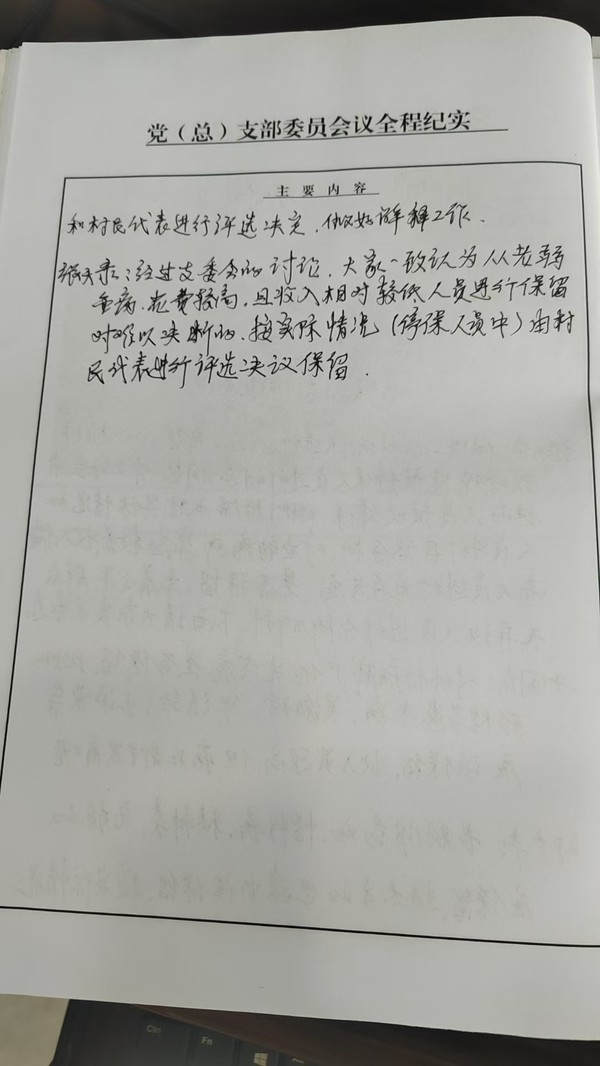 党（总）支部委员会议全程纪实
主要内容
和村民代表进行评选决定，做好解释工作．
经过支委会的讨论，大家一致认为从老弱
重病，花费较高，且收入相对较低人员进行保留
对难以决断的，按实际情况（停保人员中）由村
民代表进行评选决议保留．
Ctrl
Fn